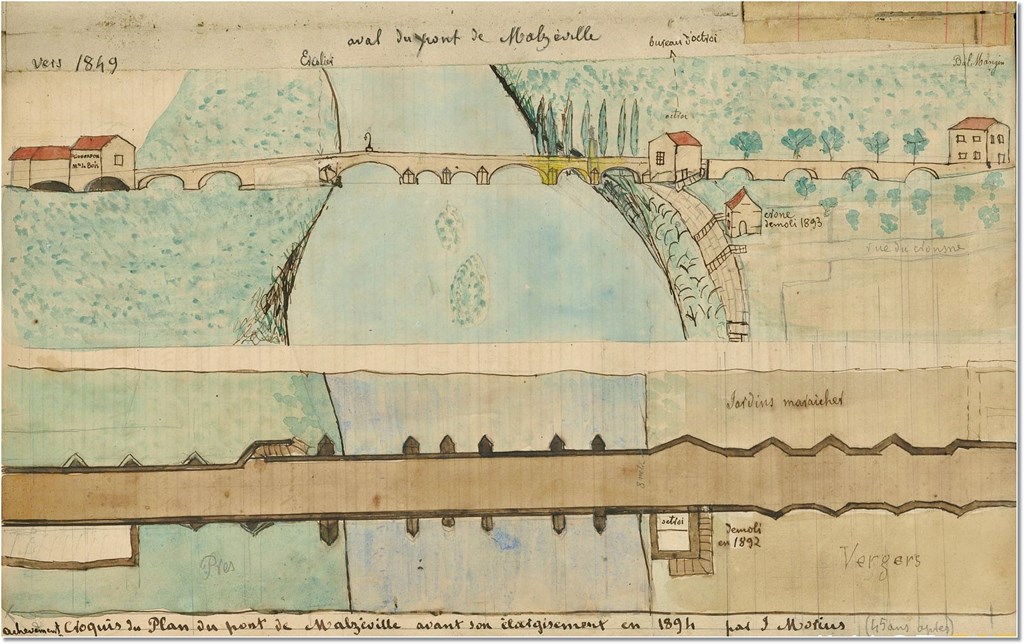 aval du pont de Malzéville
bureau d'octroi
vers 1849
Escalier
Bal Mangin
octroi
Mn de Bois
crône
démoli 1893
rue du crosne
Jardins maraicher
8 mèt
octroi
démoli
en 1892
Prés
Vergers
achevement Croquis du Plan du pont de Malzéville avant son élargissement en 1894 par J Morius (45 ans après)